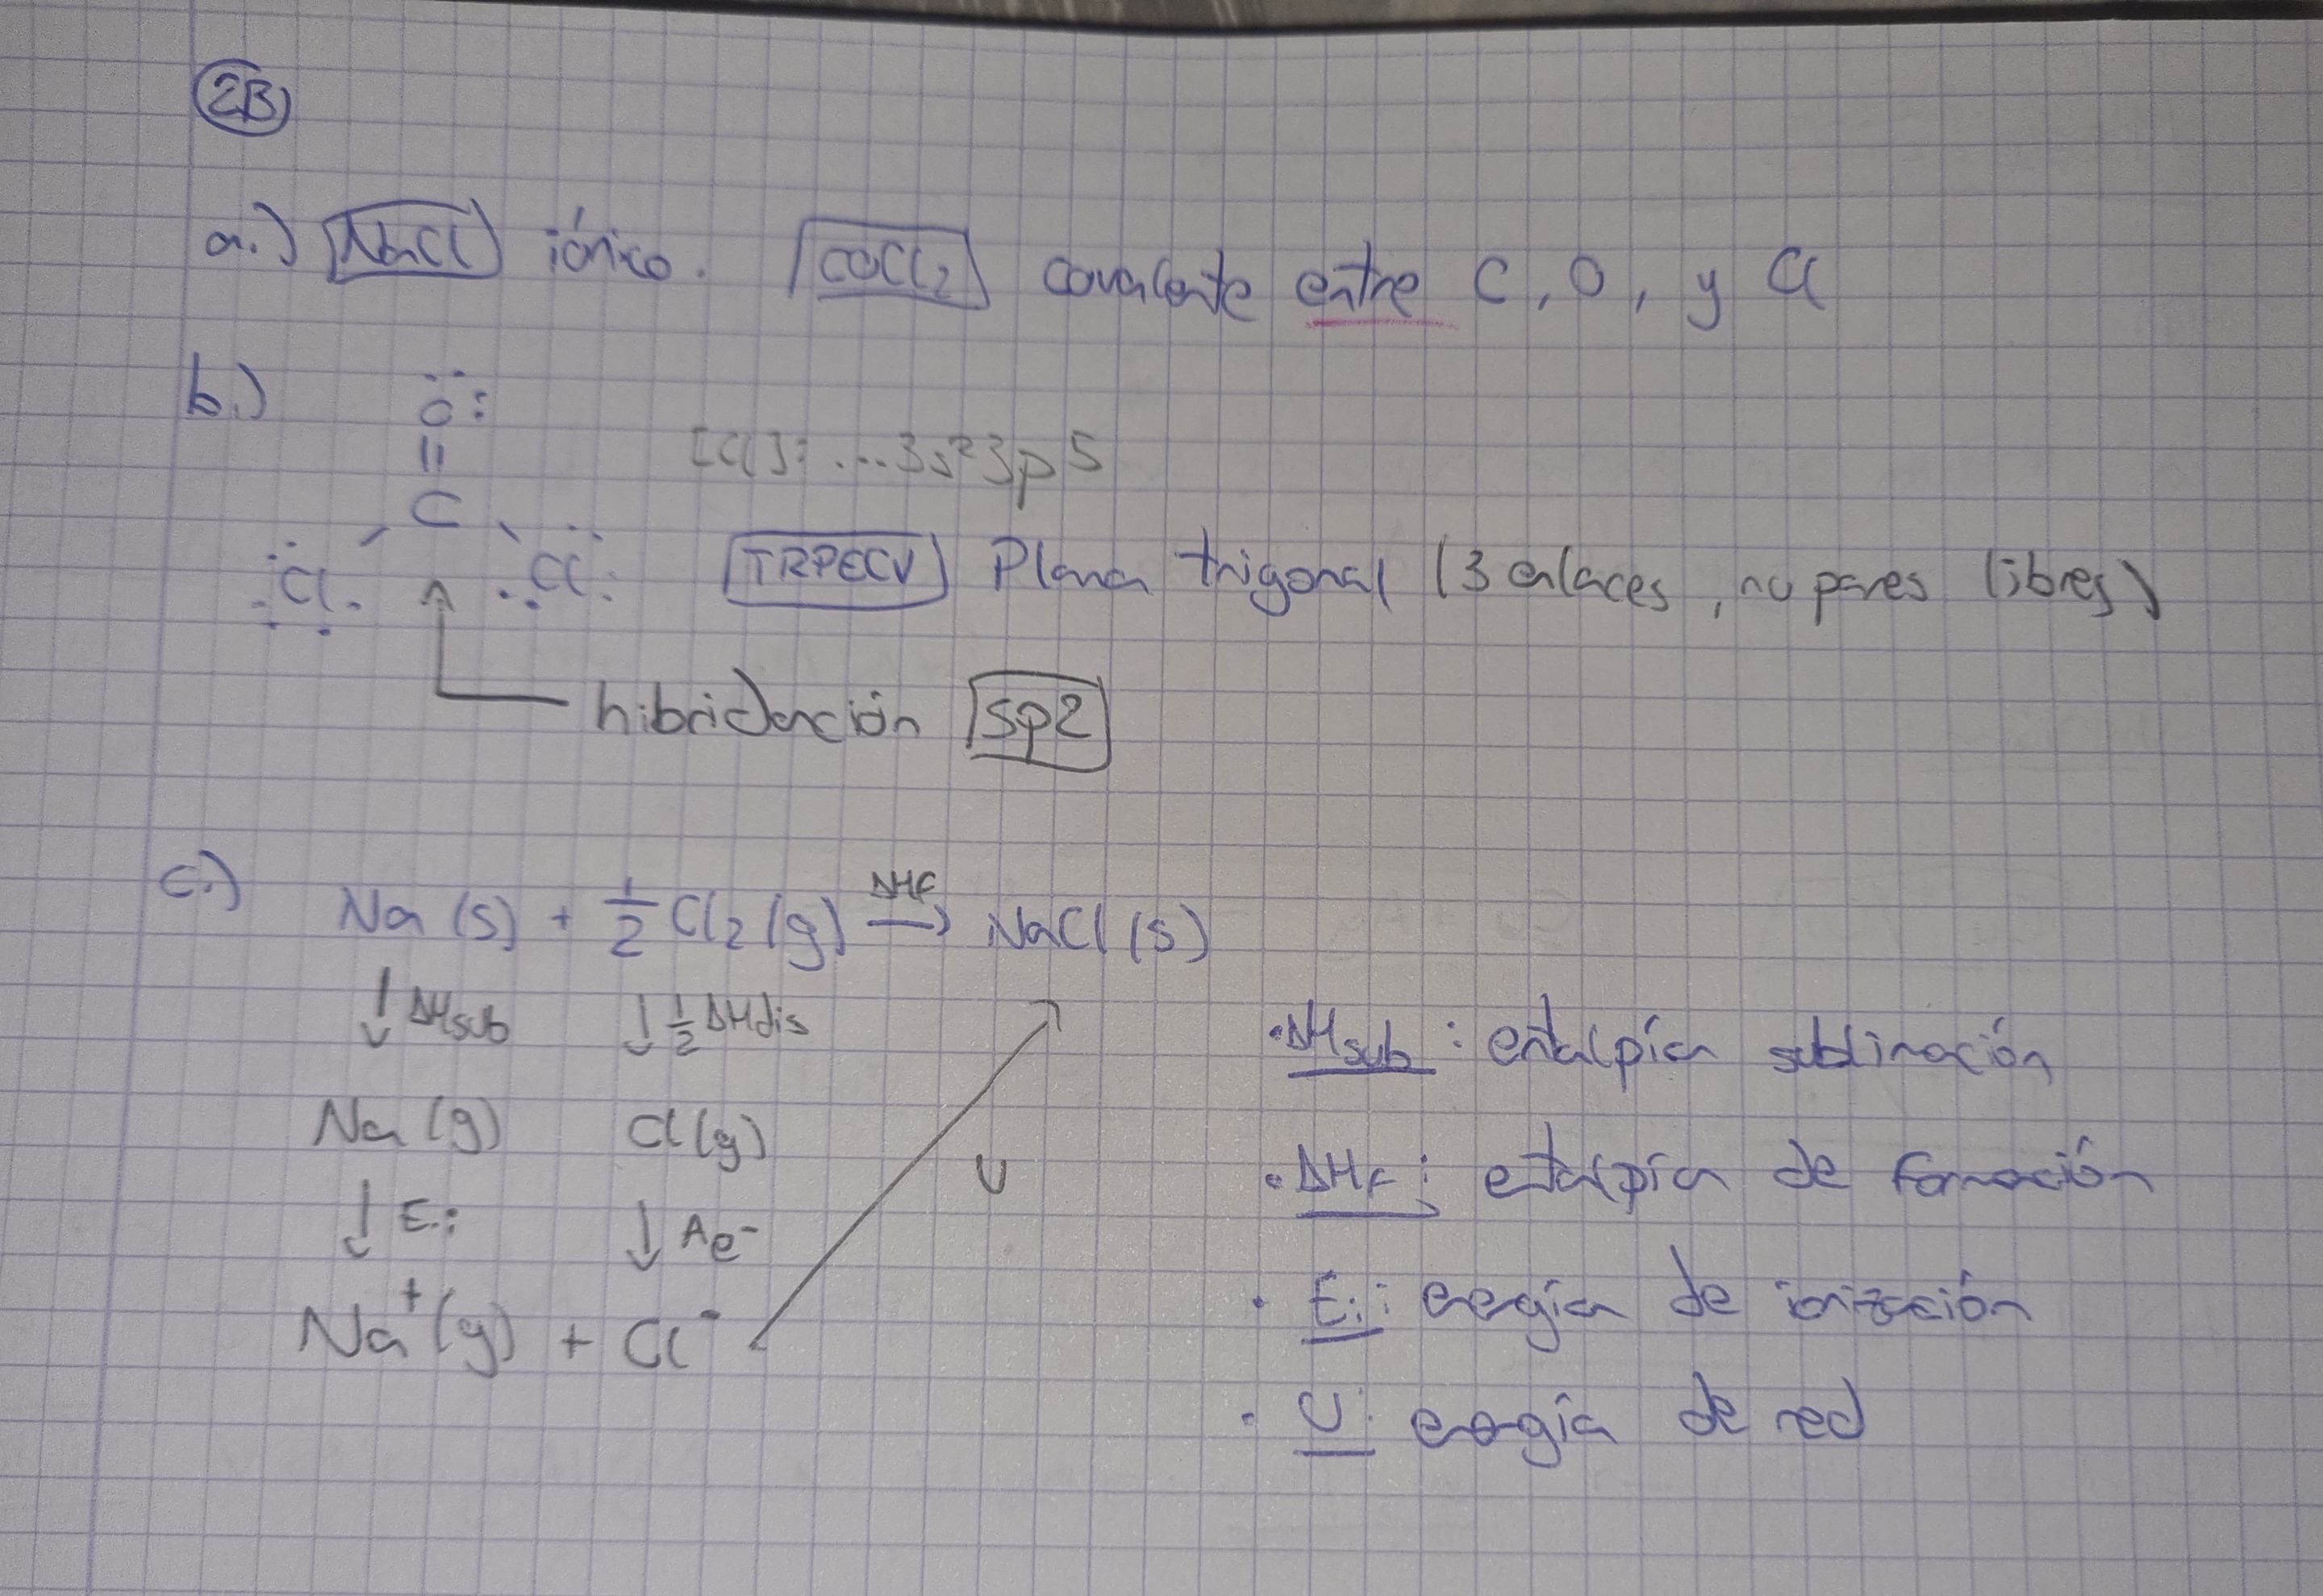 2B
a.) NaCl iónico. COCl2 covalente entre C, O, y Cl
b.)
O
||
C
Cl Cl
[Cl]: ...3s²3p5
TRPECV Plana trigonal (3 enlaces, no pares libres)
hibridación sp2
c.) Na (s) + 1/2 Cl2 (g) → NaCl (s)
ΔHf
↓ ΔHsub ↓ 1/2 ΔHdis
Na (g) Cl (g)
↓ E.i ↓ Ae-
Na+ (g) + Cl-
U
· ΔHsub : entalpía sublimación
· ΔHf : entalpía de formación
· E.i : energía de ionización
· U: energía de red